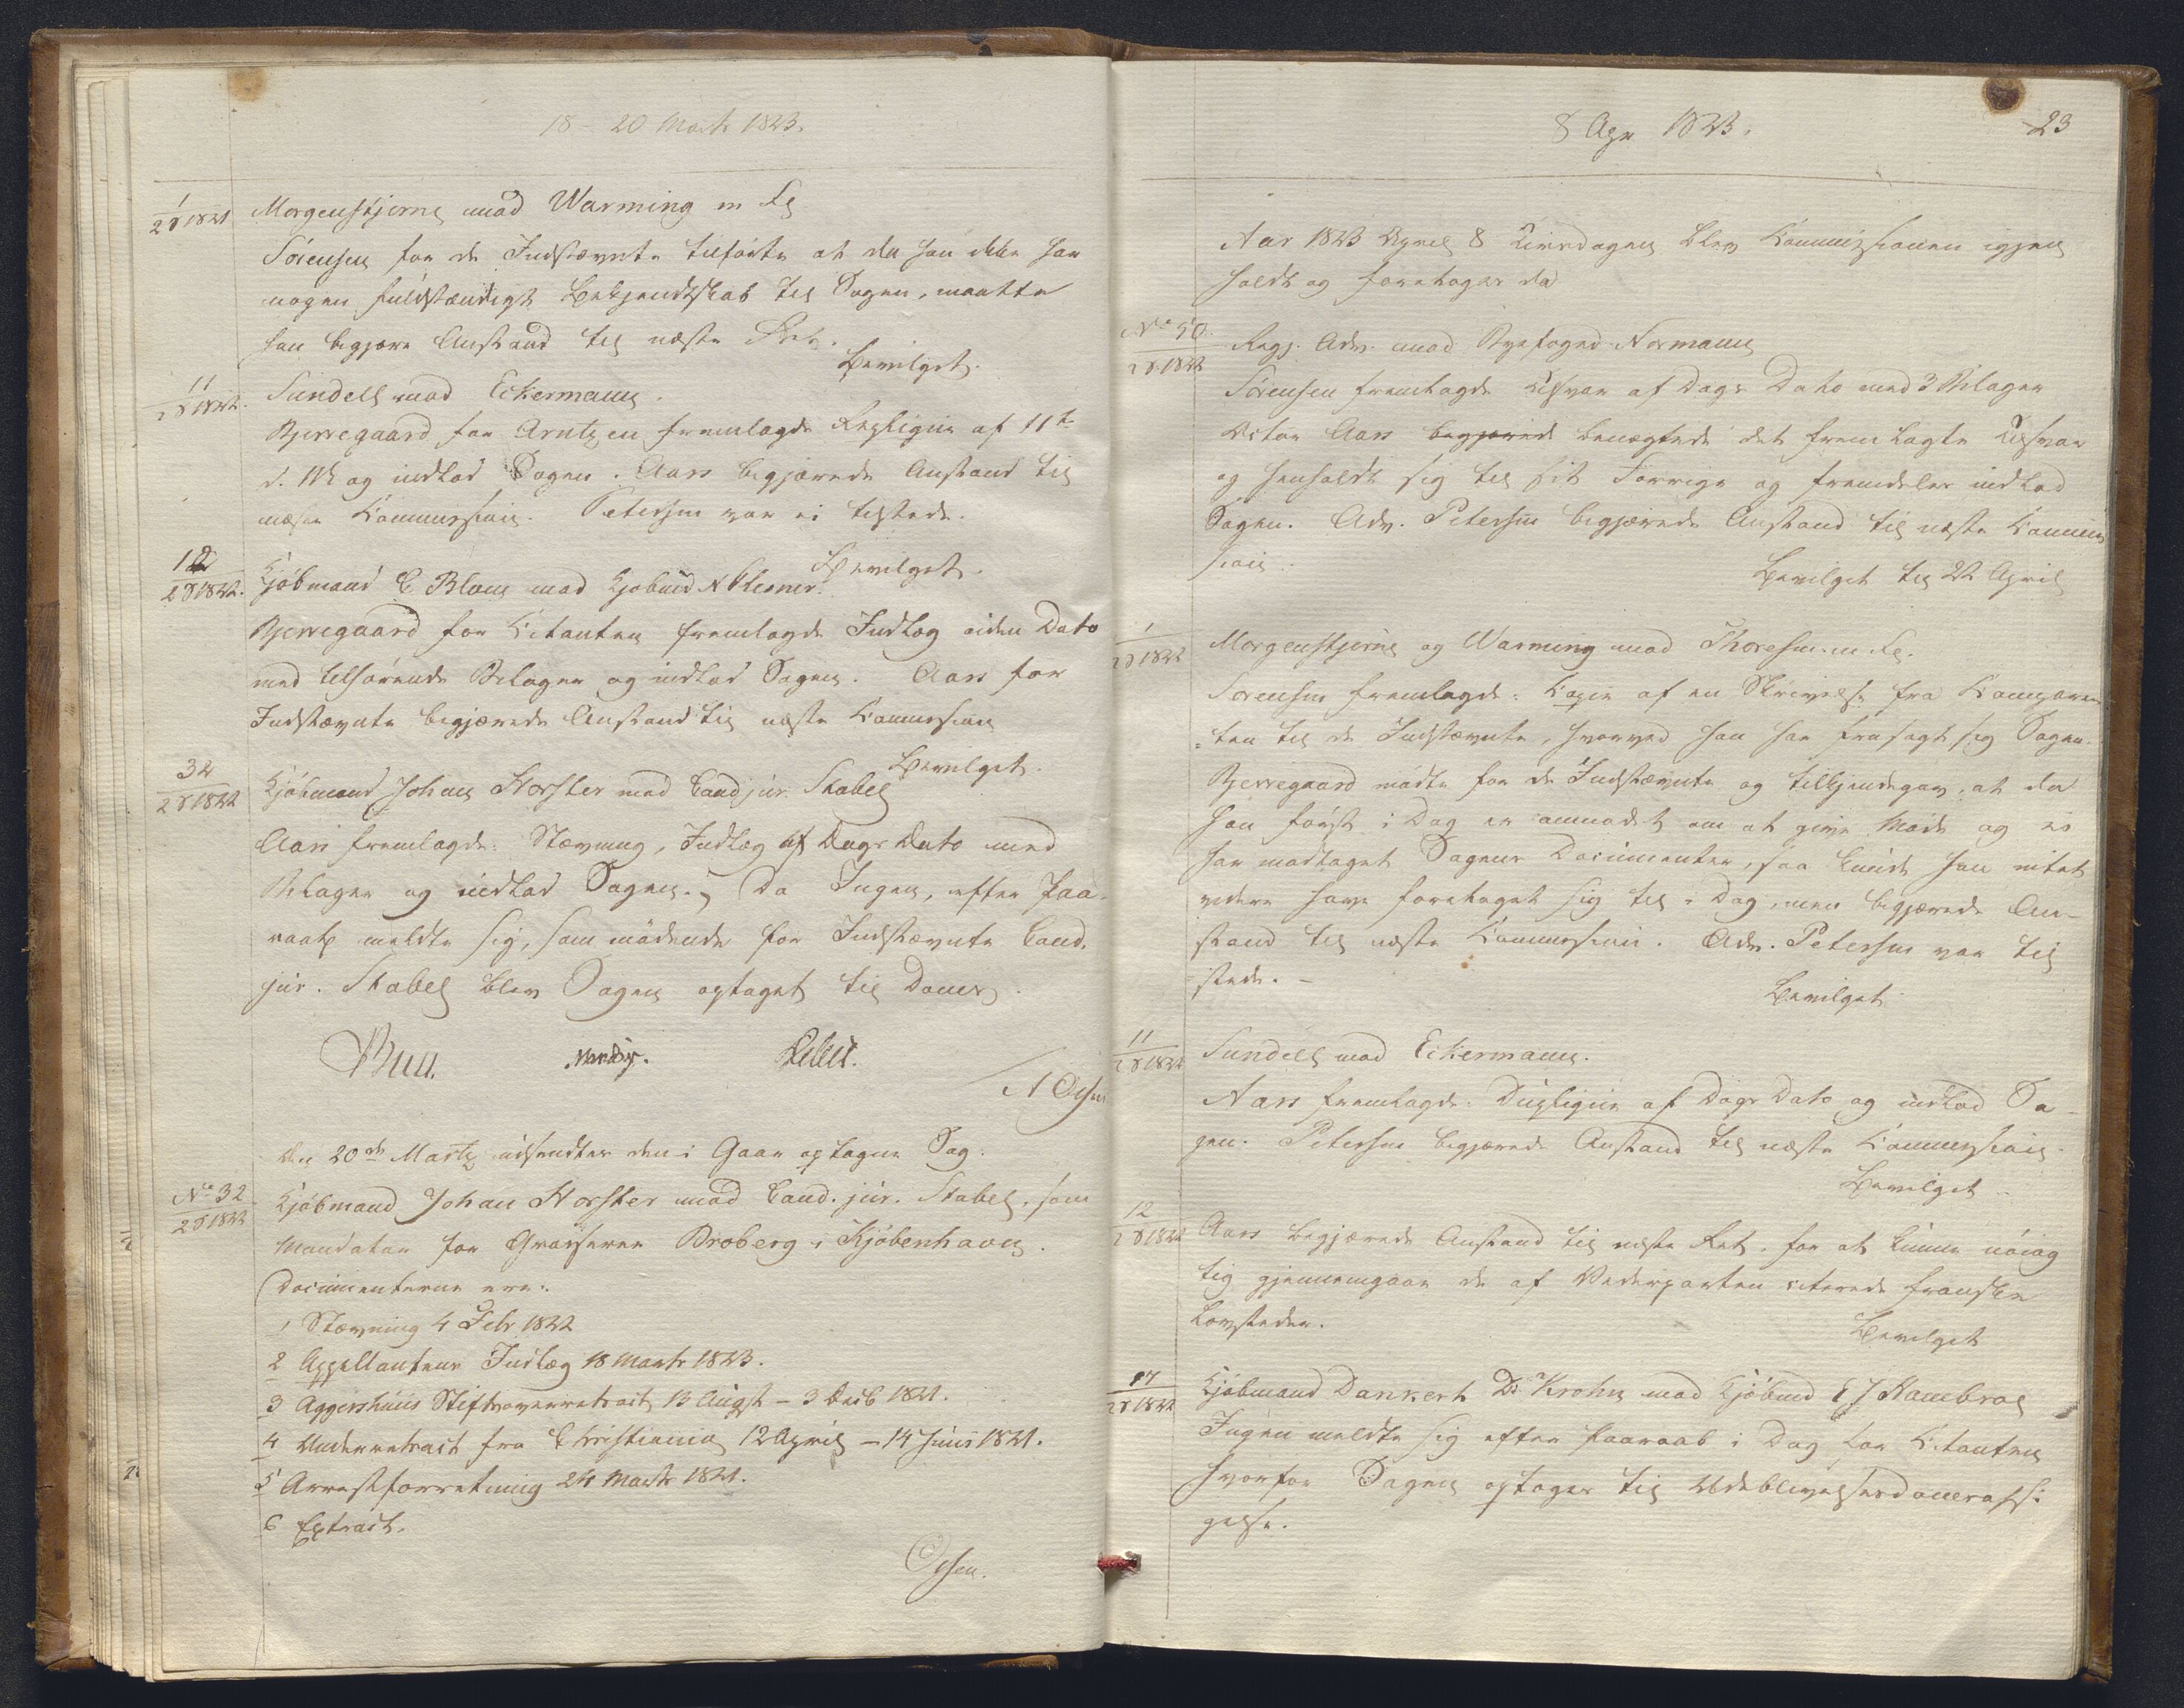 18 - 20 Marts 1823.
1
2 S 1821
Morgenstjerne mod Warming m Fl
Sörensen for de Indstævnte tilförte at da han ikke har
nogen fuldstændigt Bekjendtskab til Sagen, maatte
han begjære Anstand til næste Ret.
Bevilget.
11
2 S 1822.
Sundell mod Eckermann.
Bjerregaard for Arntzen fremlagde Repligue af 11te
d. M og indlod Sagen. Aars begjærede Anstand til
næste Commission. Petersen var ei tilstede.
Bevilget.
12
2 S 1822.
Kjöbmand C Blom mod Kjöbmd N
Bjerregaard for Citanten fremlagde Indlæg uden Dato
med tilhörende Bilager og indlod Sagen. Aars for
Indstævnte begjærede Anstand til næste Commission
Bevilget.
32
2 S 1822
Kjöbmand Johan Horster mod Cand jur. Stabel
Aars fremlagde: Stævning, Indlæg af Dags Dato med
Bilager og indlod Sagen. Da Ingen, efter Paa-
raab meldte sig, som mödende for Indstævnte Cand.
jur. Stabel blev Sagen optaget til Dom.
Bull.
Den 20de Martz udsendtes den i Gaar optagne Sag:
No 32
2 S 1822
Kjöbmand Johan Horster mod Cand. jur. Stabel, som
Mandatar for Grosserer Broberg i Kjöbenhavn.
Documenterne ere:
1 Stævning 4 Febr 1822
2 Appellantens Indlæg 18 Marts 1823.
3 Aggershuus Stiftsoverretsact 13 Augst - 3 Decb 1821.
4 Underretsact fra Christiania 12 April - 14 Juni 1821.
5 Arrestforretning 24 Marts 1821.
6 Extract.
8 Apr 1823.
23
Aar 1823 April 8 Tirsdagen blev Commissionen igjen
holdt og foretoges da
No 50
2 S 1822
Regj. Adv. mod Byefoged Normann
Sörensen fremlagde Tilsvar af Dags Dato med 3 Bilager
Actor Aars begjærede benegtede det fremlagte Tilsvar
og henholdt sig til sit Forrige og fremdeles indlod
Sagen. Adv. Petersen begjærede Anstand til næste Commis
sion.
Bevilget til 22 April
1
2 S 1822
Morgenstjerne og Warming mod Thoresen m. Fl.
Sörensen fremlagde: Copie af en Skrivelse fra Comparen
=ten til de Indstævnte, hvorved han har frasagt sig Sagen.
Bjerregaard mödte for de Indstævnte og tilkjendegav, at da
han först i Dag er anmodet om at give Möde og ei
har modtaget Sagens Documenter, saa kunde han intet
videre have foretaget sig til i Dag, men begjærede An-
stand til næste Commission. Adv. Petersen var til
=stede. -
Bevilget
11
2 S 1822
Sundell mod Eckermann.
Aars fremlagde: Dupligue af Dags Dato og indlod Sa-
gen. Petersen begjærede Anstand til næste Commission.
Bevilget
12
2 S 1822
Aars begjærede Anstand til næste Ret, for at kunne nöiag
tig gjennemgaae de af Vederparten citerede franske
Lovsteder.
Bevilget
17
2 S 1822
Kjöbmand Dankert D: Krohn mod Kjöbmd E J Hambroe
Ingen meldte sig efter Paaraab i Dag for Citanten
hvorfor Sagen optages til Udeblivelsesdomsafsi
gelse.